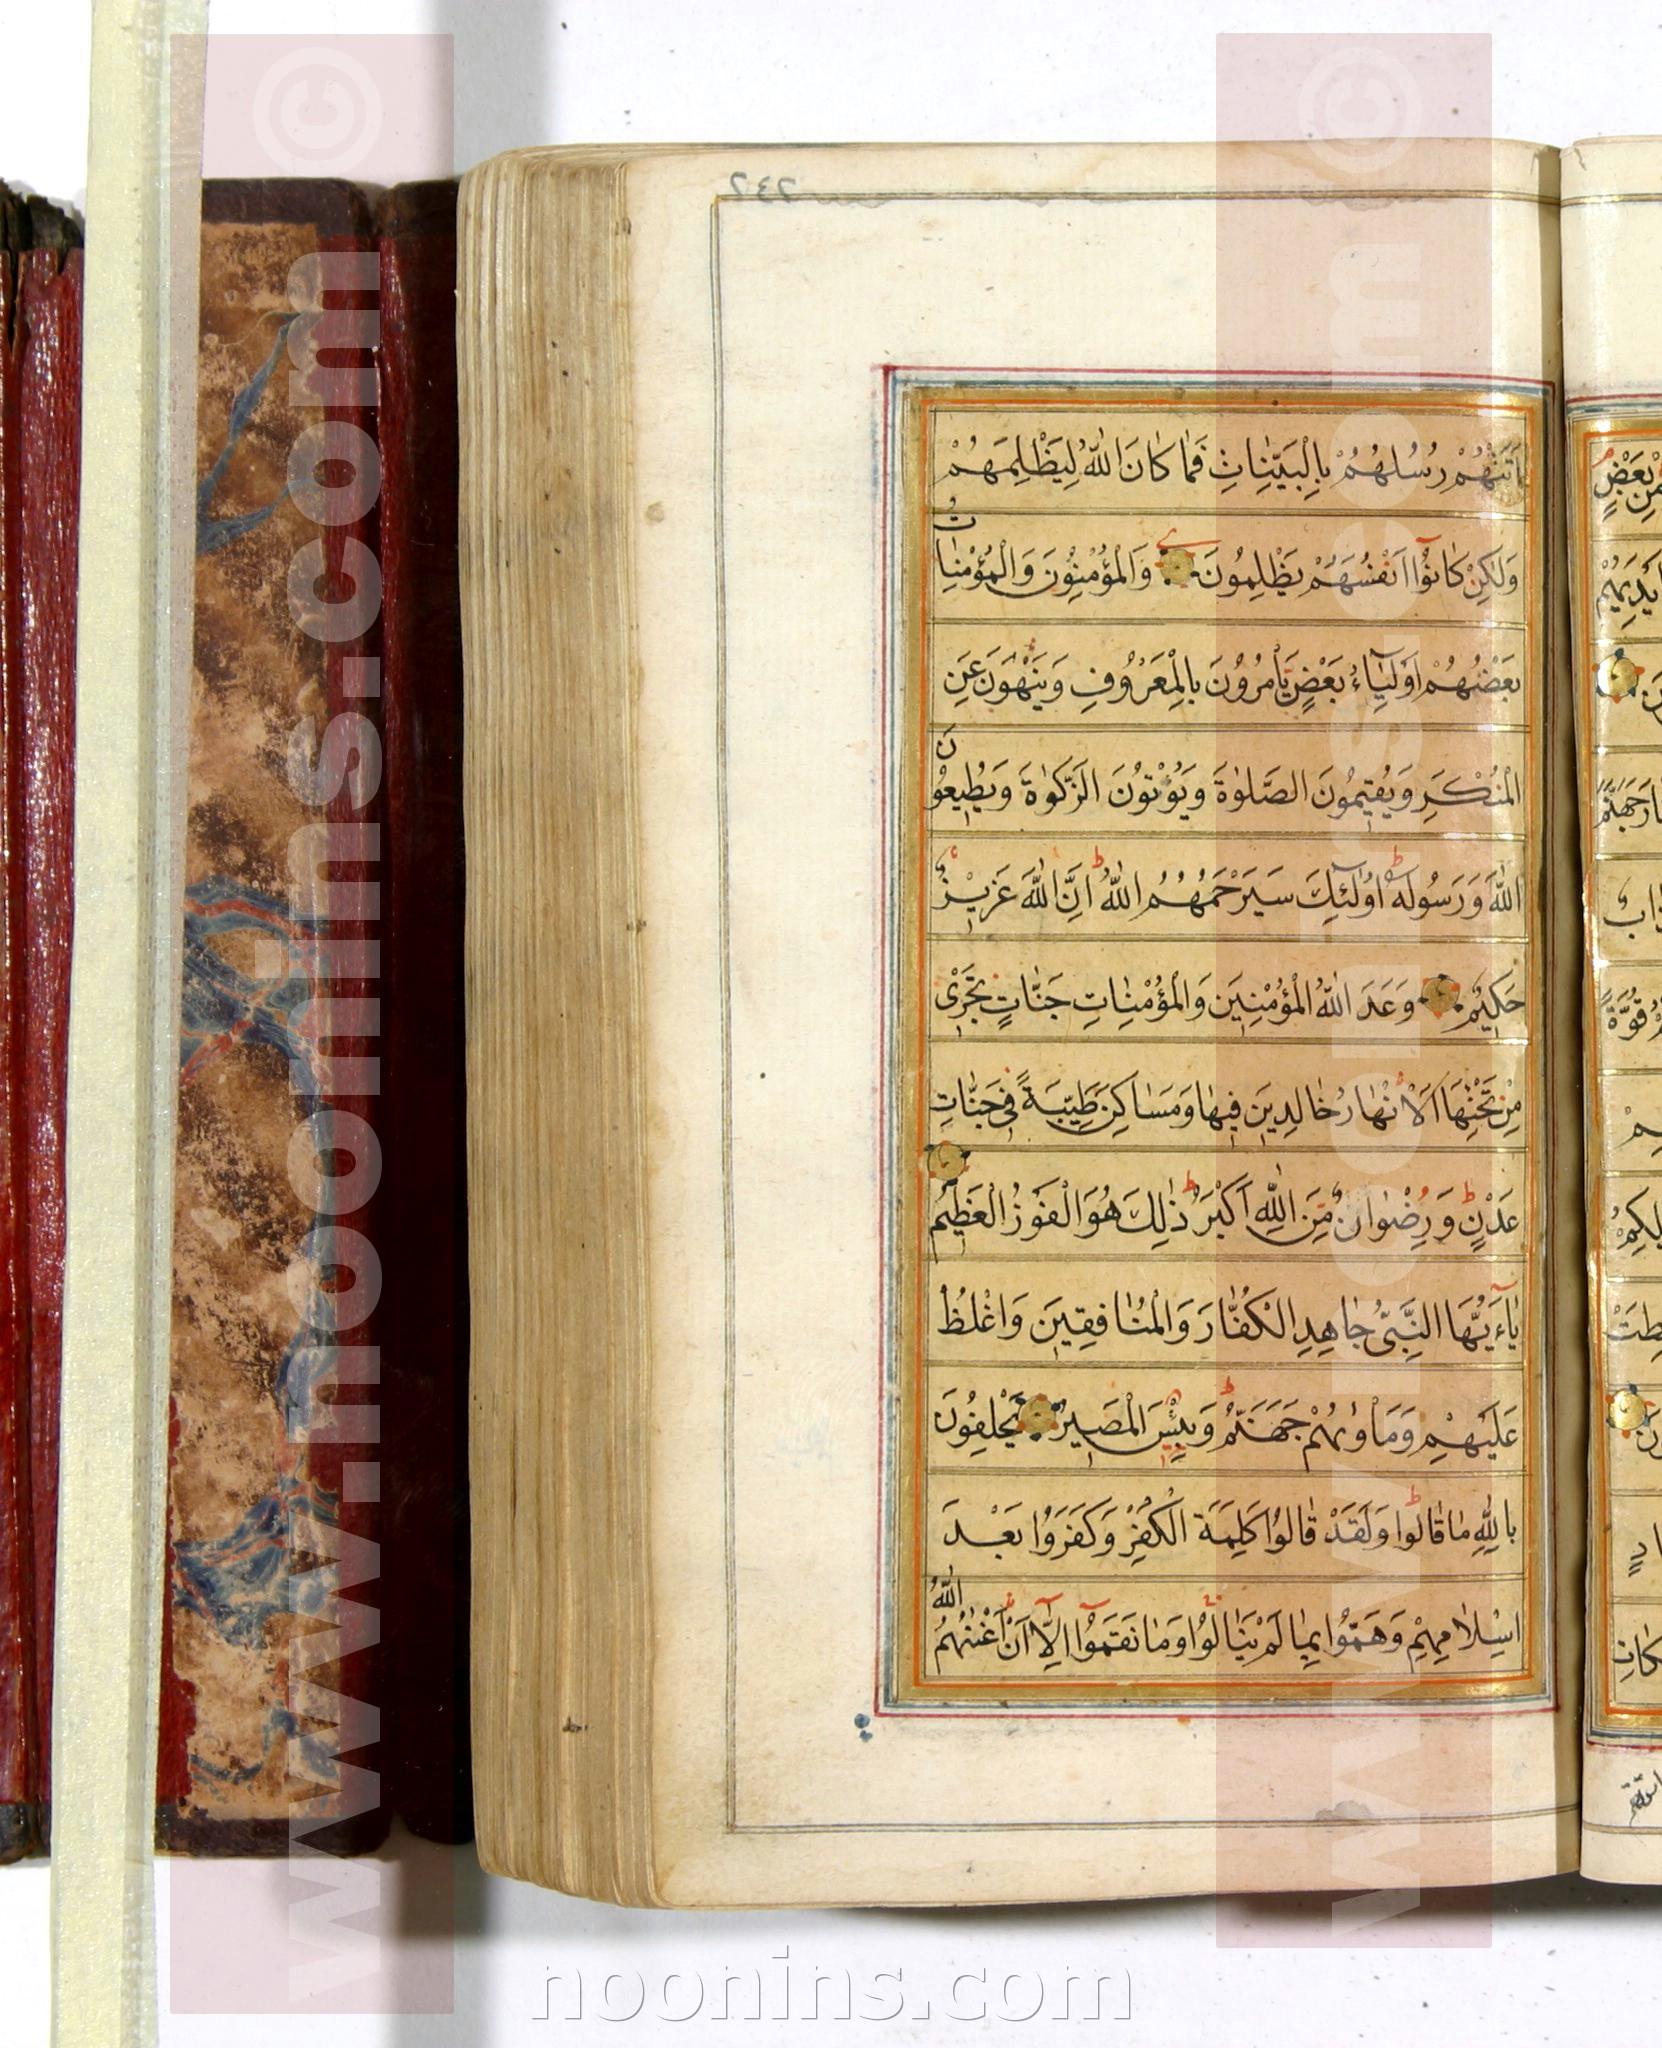 اَتَتْهُمْ رُسُلُهُمْ بِالْبَيِّنٰاتِ فَمٰا كٰانَ اللّٰهُ لِيَظْلِمَهُمْ
وَلٰكِنْ كٰانُوٓا اَنْفُسَهُمْ يَظْلِمُونَ وَالْمُؤْمِنُونَ وَالْمُؤْمِنٰاتُ
بَعْضُهُمْ اَوْلِيٰٓاءُ بَعْضٍ يَأْمُرُونَ بِالْمَعْرُوفِ وَيَنْهَوْنَ عَنِ
الْمُنْكَرِ وَيُقِيمُونَ الصَّلٰوةَ وَيُؤْتُونَ الزَّكٰوةَ وَيُطِيعُونَ
اللّٰهَ وَرَسُولَهُ اُولٰٓئِكَ سَيَرْحَمُهُمُ اللّٰهُ اِنَّ اللّٰهَ عَزِيزٌ
حَكِيمٌ وَعَدَ اللّٰهُ الْمُؤْمِنِينَ وَالْمُؤْمِنٰاتِ جَنّٰاتٍ تَجْرِي
مِنْ تَحْتِهَا الْاَنْهٰارُ خٰالِدِينَ فِيهٰا وَمَسٰاكِنَ طَيِّبَةً فِي جَنّٰاتِ
عَدْنٍ وَرِضْوٰانٌ مِنَ اللّٰهِ اَكْبَرُ ذٰلِكَ هُوَ الْفَوْزُ الْعَظِيمُ
يٰٓاءَيُّهَا النَّبِيُّ جٰاهِدِ الْكُفّٰارَ وَالْمُنٰافِقِينَ وَاغْلُظْ
عَلَيْهِمْ وَمَأْوٰيهُمْ جَهَنَّمُ وَبِئْسَ الْمَصِيرُ يَحْلِفُونَ
بِاللّٰهِ مٰا قٰالُوا وَلَقَدْ قٰالُوا كَلِمَةَ الْكُفْرِ وَكَفَرُوا بَعْدَ
اِسْلٰامِهِمْ وَهَمُّوا بِمٰا لَمْ يَنٰالُوا وَمٰا نَقَمُوٓا اِلّٰٓا اَنْ اَغْنٰهُمُ اللّٰهُ
www.noonins.com ©
www.noonins.com ©
noonins.com